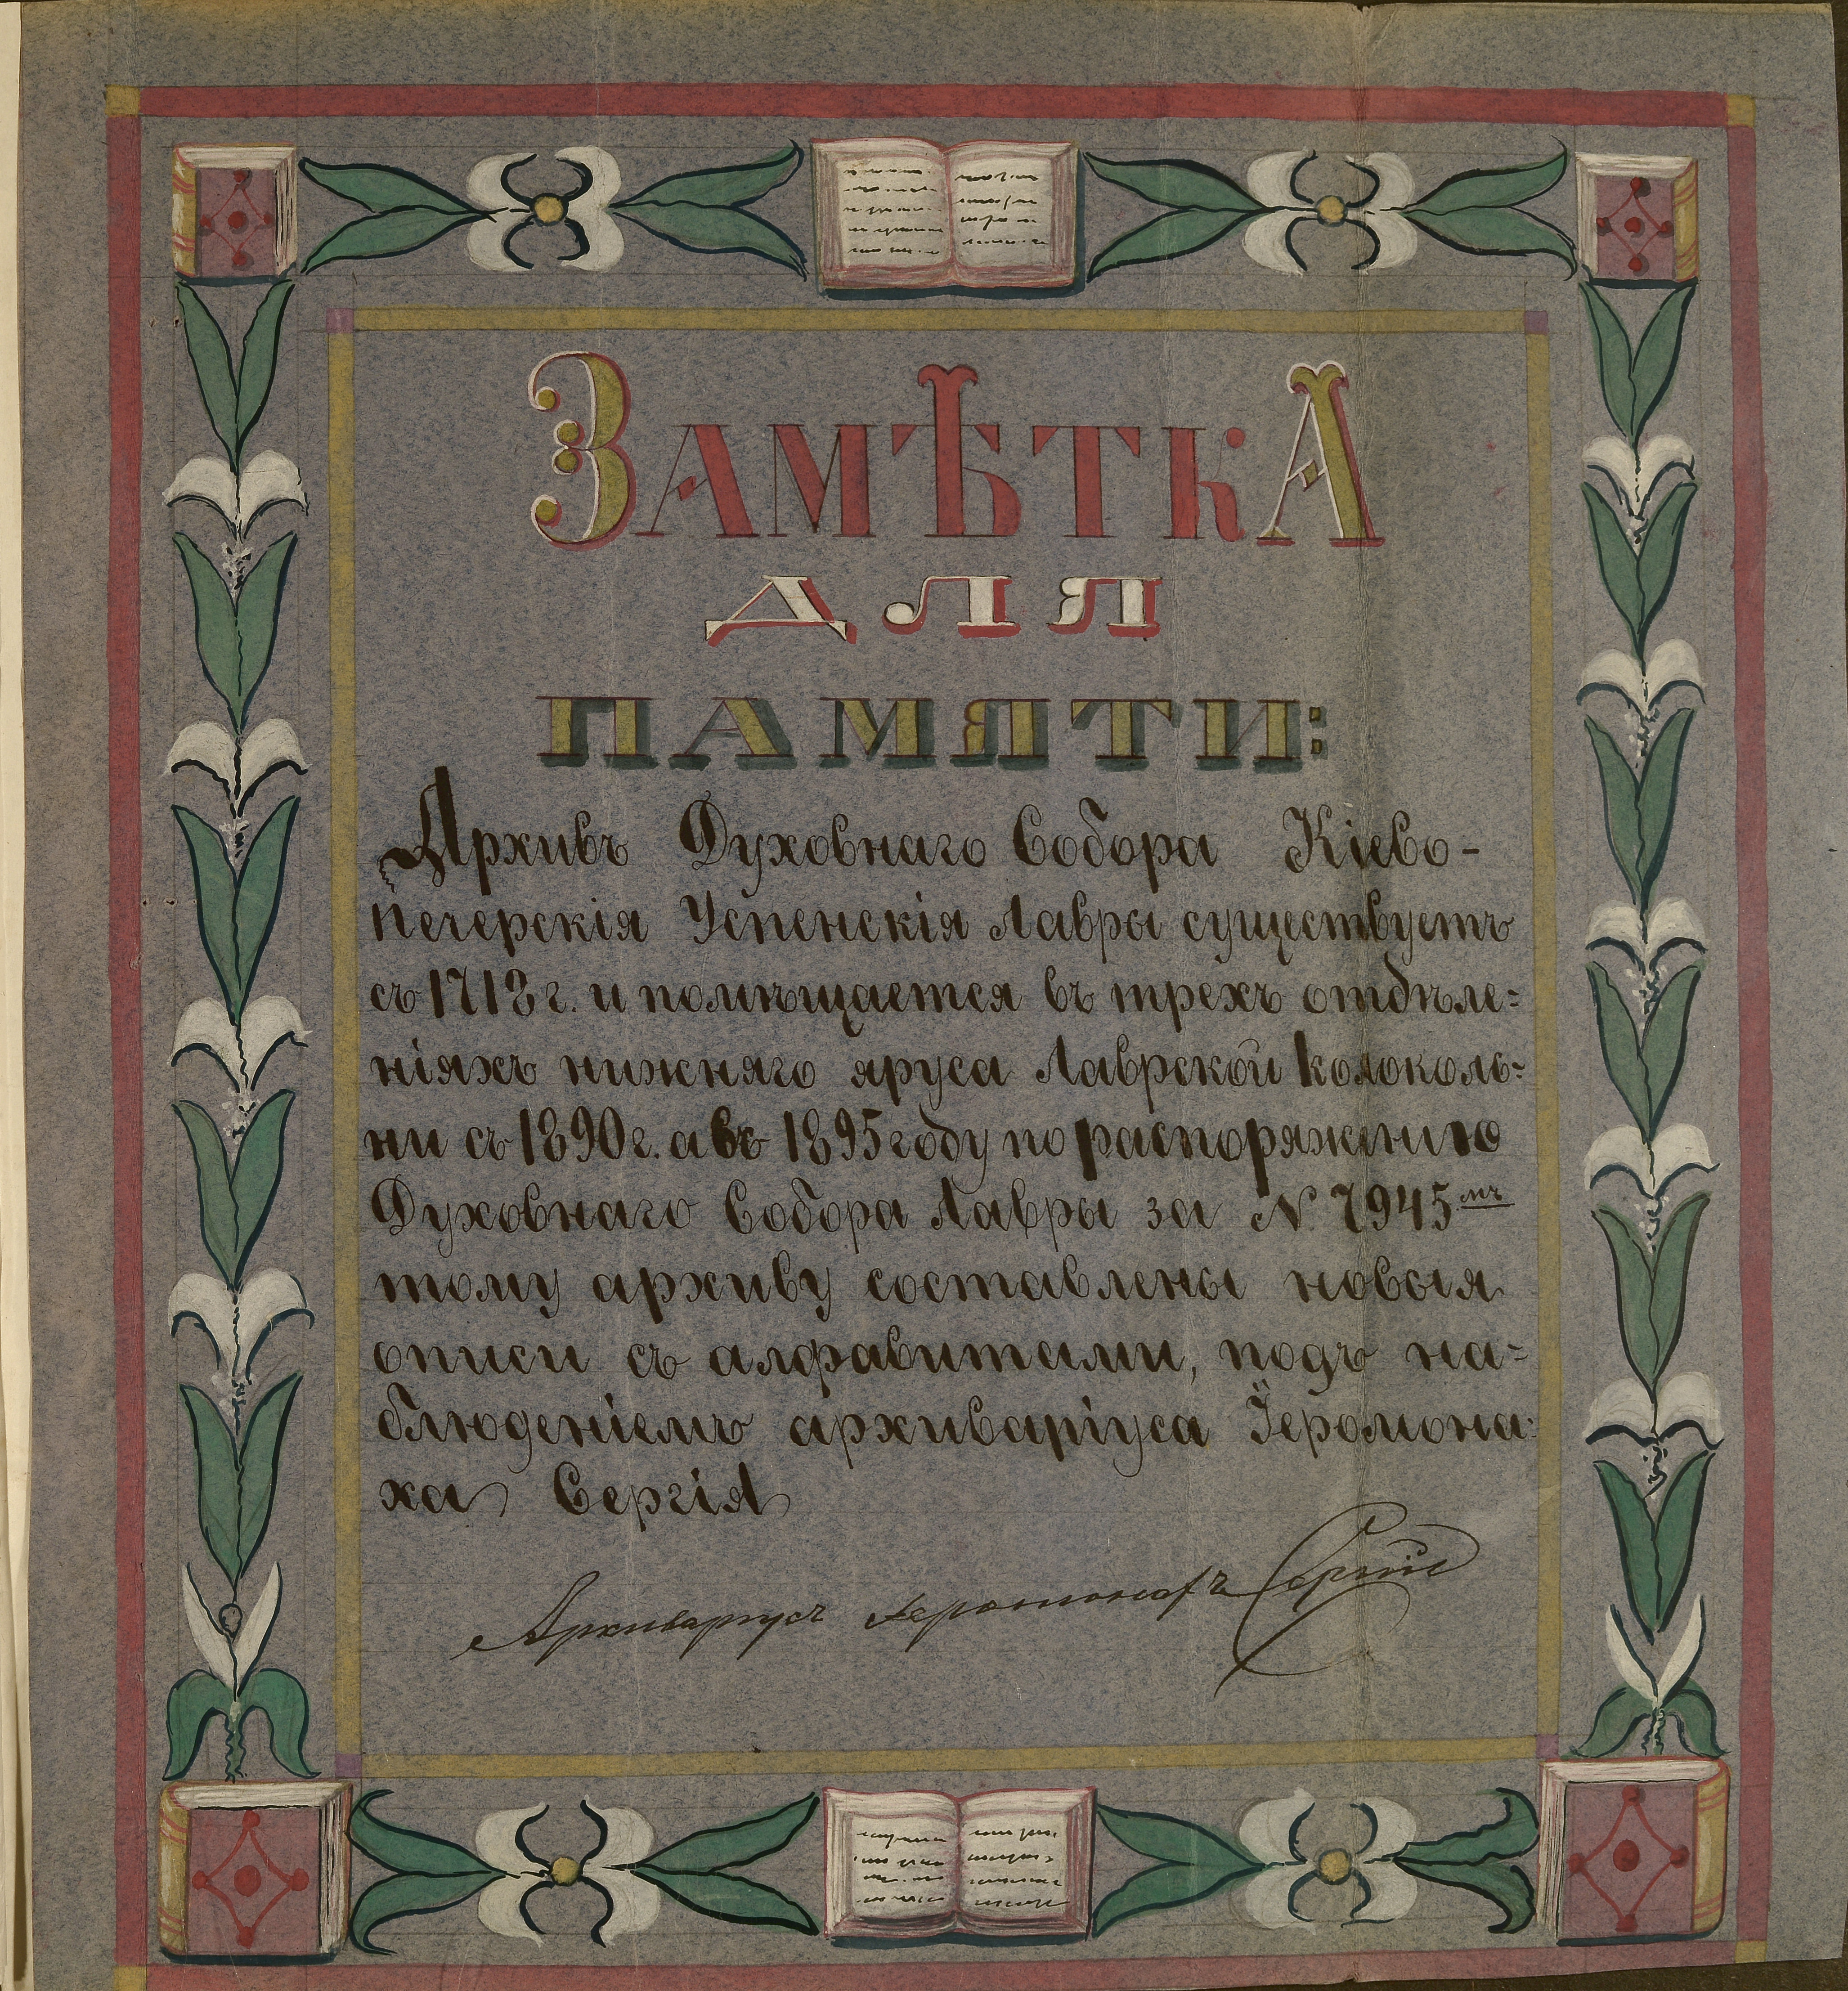 ЗАМѢТКА
ДЛЯ
ПАМЯТИ:
Архивъ Духовнаго Собора Кіево-
Печерскія Успенскія Лавры существуетъ
съ 1718 г. и помѣщается въ трехъ отдѣле=
ніяхъ нижняго яруса Лаврской колоколь=
ни съ 1890 г. а въ 1895 году по распоряженію
Духовнаго Собора Лавры за N 7945 мъ
тому архиву составлены новыя
описи съ алфавитами, подъ на=
блюденіемъ архиваріуса Іеромона=
ха Сергія
Архиваріусъ Іеромонахъ Сергій